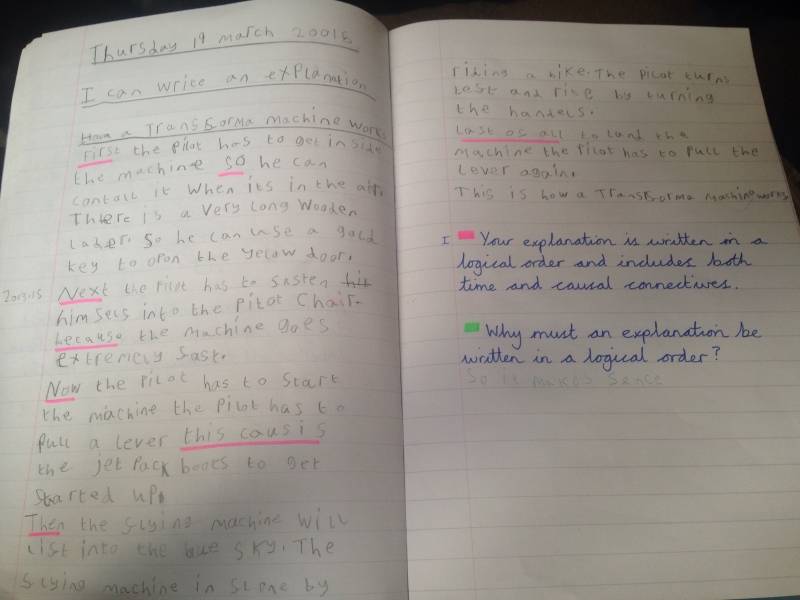 Thursday 19 march 20015
I can write an explanation
How a Transforma machine works
First the pilot has to get in side
the machine so he can
contalt it when its in the air.
There is a very long wooden
lader. so he can use a gold
key to opon the yelow door.
20.3.15 Next the pilot has to fasten his
himself into the pilot chair.
because the machine goes
extremely fast.
Now the pilot has to start
the machine the pilot has to
pull a lever this causis
the jet pack boots to get
started up.
Then the flying machine will
lift into the blue sky. The
flying machine in flone by
riding a bike. The pilot turns
left and rise by turning
the handels.
Last of all to land the
machine the pilot has to pull the
lever again.
This is how a Transforma machine works
I Your explanation is written in a
logical order and includes both
time and causal connectives.
Why must an explanation be
written in a logical order?
So it makes sence